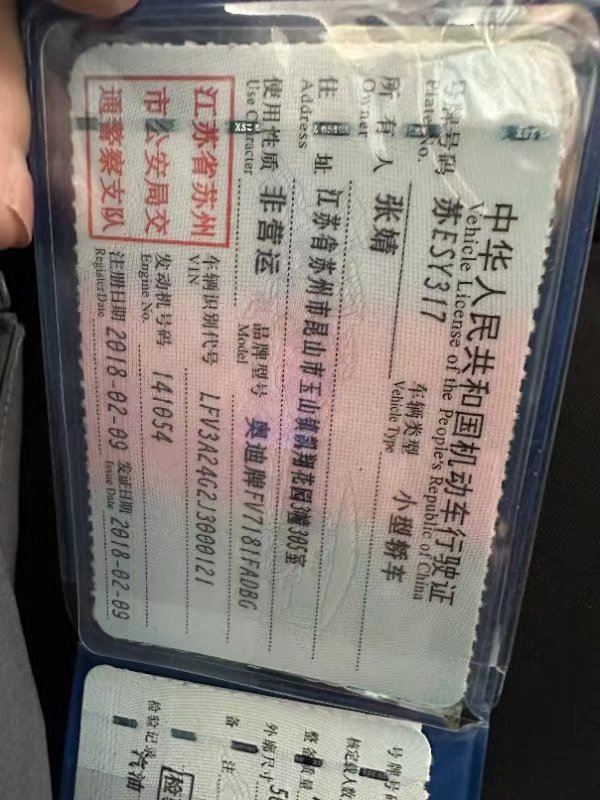 中华人民共和国机动车行驶证
Vehicle License of the People's Republic of China
号牌号码 苏ESY317 车辆类型 小型轿车
Plate No. Vehicle Type
所有人 张婧
Owner
住址 江苏省苏州市昆山市玉山镇凯翔花园3幢305室
Address
使用性质 非营运 品牌型号 奥迪牌FV7181FADBG
Use Character Model
江苏省苏州
市公安局交
通警察支队
车辆识别代号 LFV3A24G2J3000121
VIN
发动机号码 141054
Engine No.
注册日期 2018-02-09 发证日期 2018-02-09
Register Date Issue Date
号牌号码
核定载人数
整备质量
外廓尺寸 50
备 注
检验记录 汽油